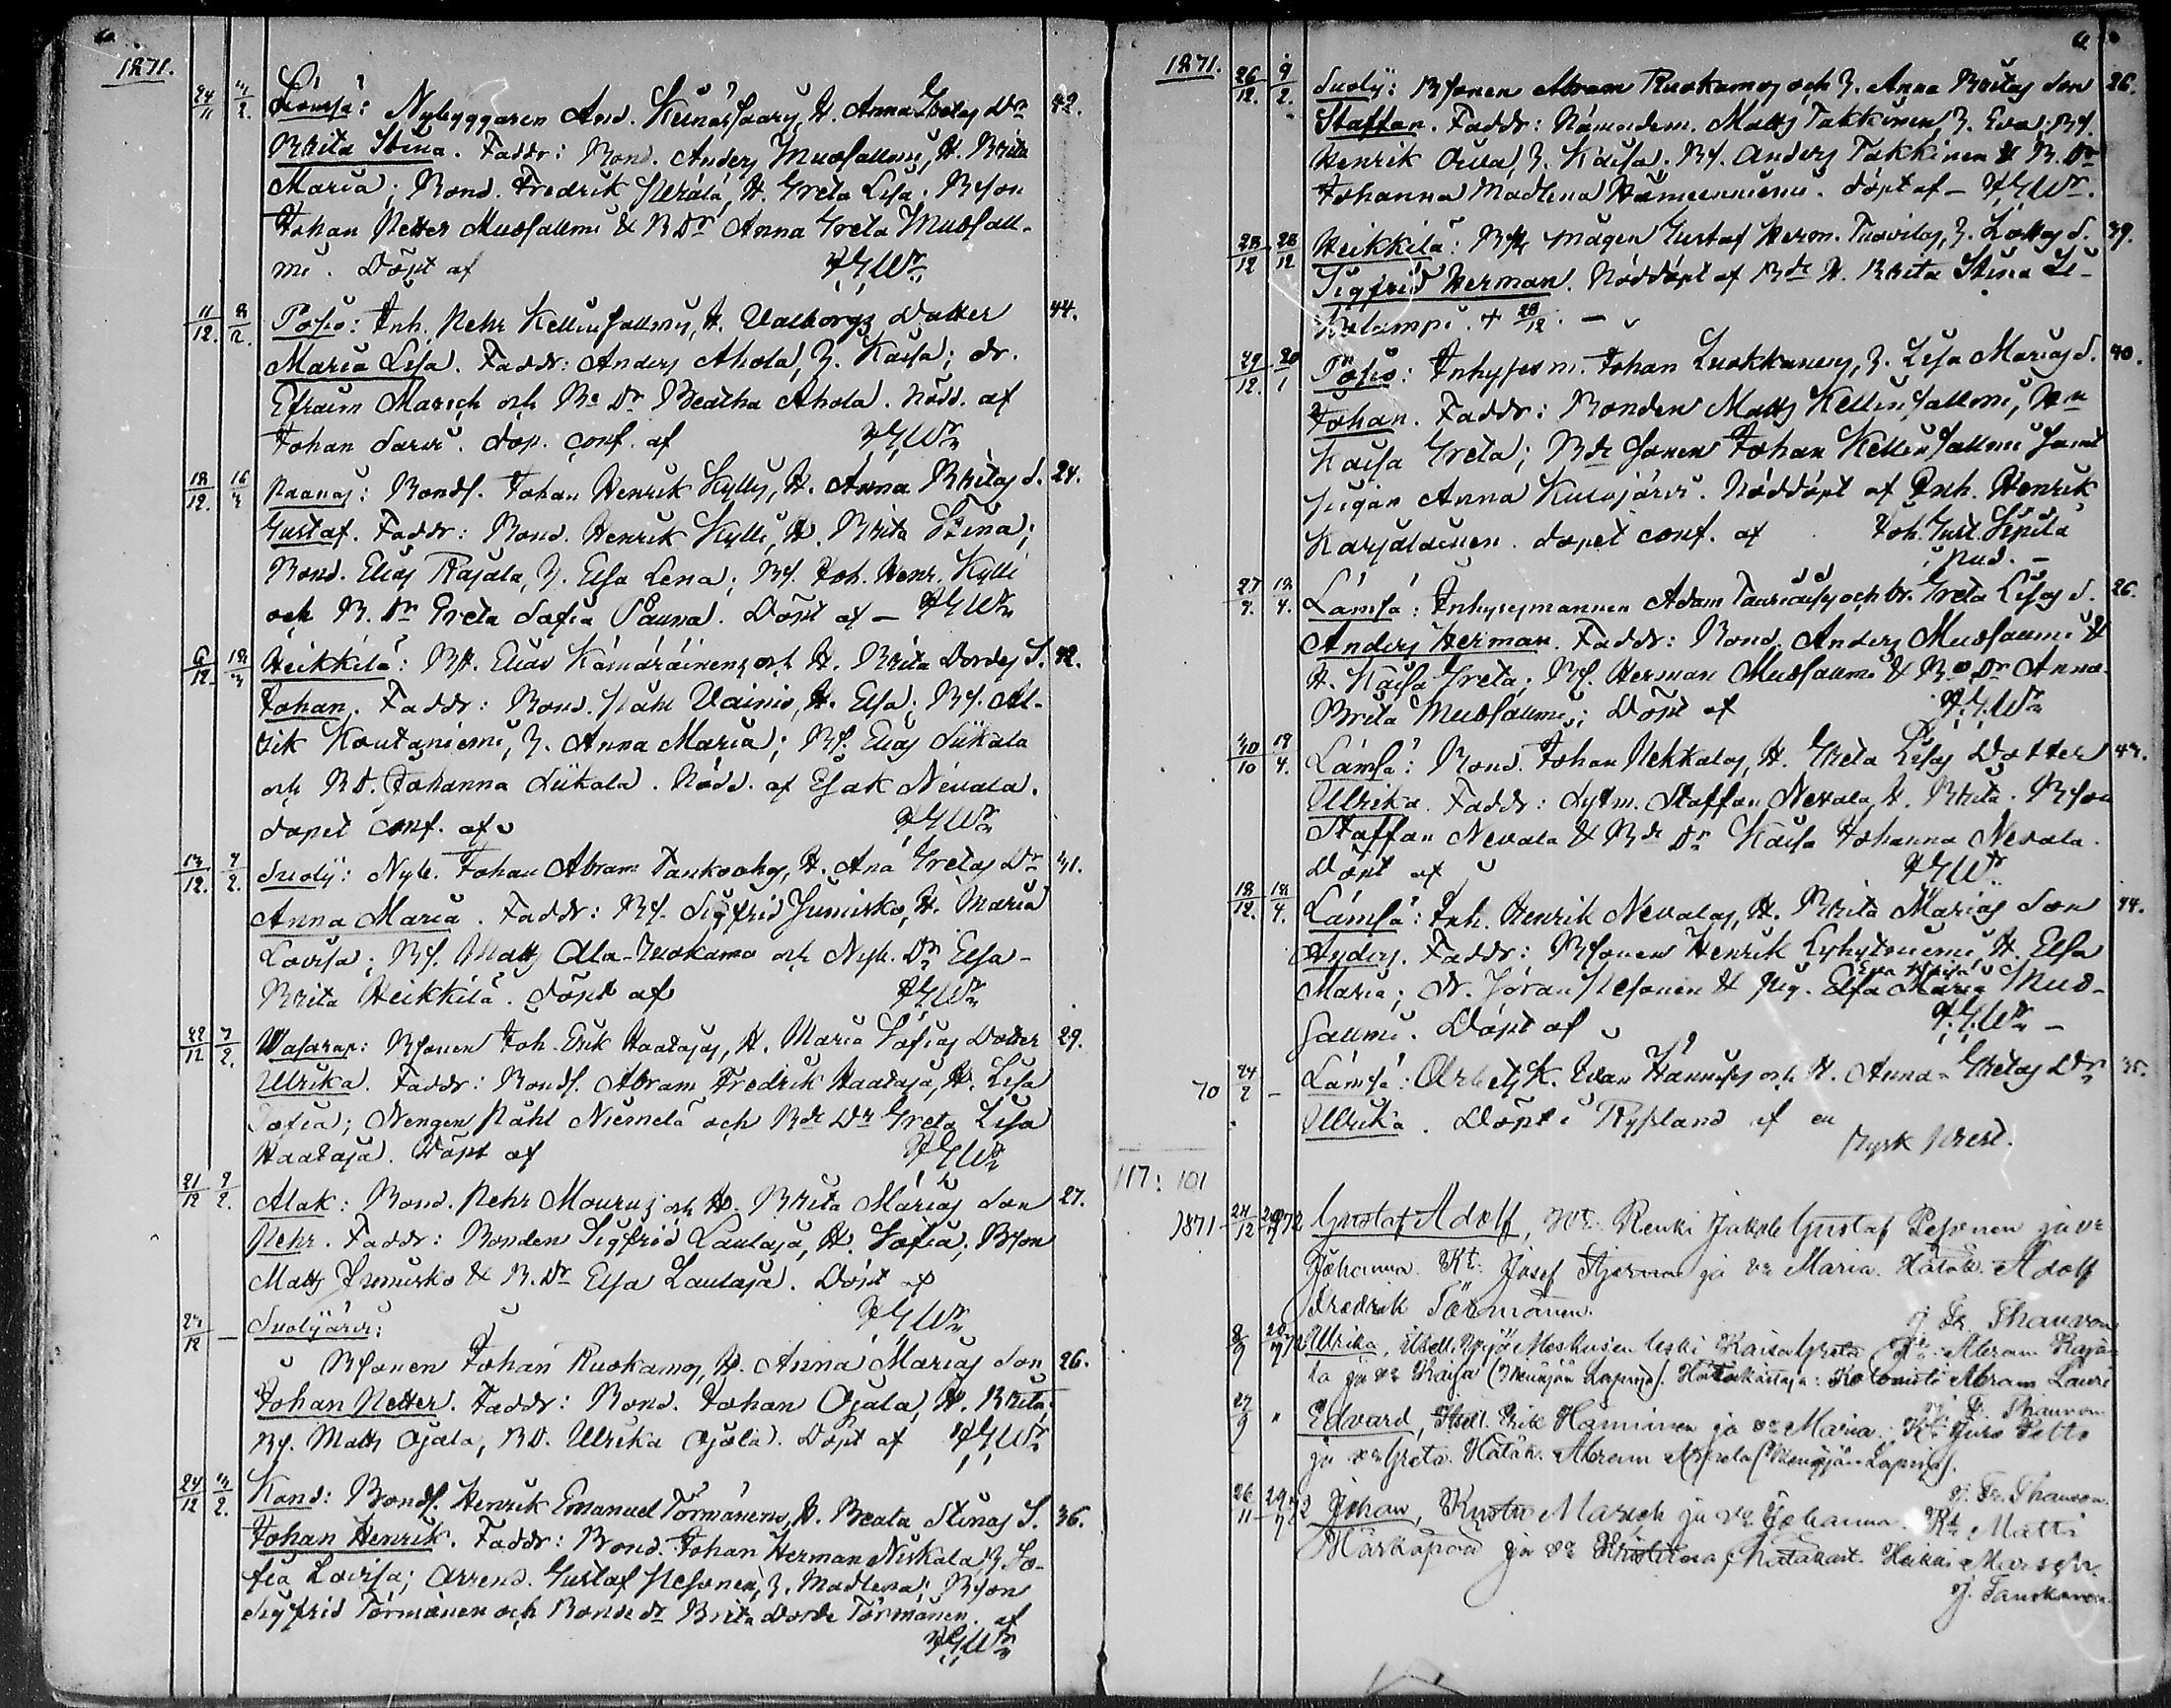 1871.
24/11 3/2. Lämsä: Nybyggaren And. Kiinasaaris, H. Anna Gretas Dr 42.
Brita Stina. Faddr: Bond. Anders Muosalmi, H. Brita
Maria; Bond. Fredrik Perälä, H. Greta Lisa. Bson
Johan Petter Muosalmi & B Dr Anna Greta Muosal-
mi. Döpt af JGWn
11/12. 8/2. Posio: Inh. Pehr Kellinsalmis, H. Valborgs Dotter 44.
Maria Lisa. Faddr: Anders Ahola, h. Kaisa; dr.
Efraim Marsch och Be Dr Beatha Ahola. Nödd. af
Johan Sarvi. dop. conf. af JGWn
18/12. 16/3 Paanaj: Bonds. Johan Henrik Kyllis, H. Anna Britas S. 24.
Gustaf. Faddr: Bond. Henrik Kylli, H. Brita Stina;
Bond. Elias Rajala, h. Elsa Lena; Bs. Joh. Henr. Kylli
och B. Dr Greta Sofia Pauna. Döpt af – JGWn
6/12 18/3 Heikkilä: Elias Kämäräinens och H. Brita Dordes S. 42.
Johan. Faddr: Bond. Påhl Vainio, H. Elsa; Bs. Al-
rik Koutaniemi, h. Anna Maria; Bs. Elias Siikala
och B D. Johanna Siikala. Nödd. af Esak Nevala.
dopet conf. af JGWn
13/12. 7/2. Suolij: Nyb. Johan Abram Tankoahos, H. Ana Gretas Dr 31.
Anna Maria. Faddr: Bs. Sigfrid Jumisko, H. Maria
Lovisa; Bs. Matts Ala-Suokamo och Nyb. Dr Elsa-
Brita Heikkilä. Döpt af JGWn
22/12 7/2. Wasarap: Bsonen Joh. Erik Haatajas, H. Maria Sofias Dotter 29.
Ulrika. Faddr: Bonds. Abram Fredrik Haataja, H. Lisa
Sofia; Drengen Påhl Niemelä och Bde Dr Greta Lisa
Haataja. Döpt af JGWn
21/12 9/2. Alak: Bond. Pehr Mourus och H. Brita Marias Son 27.
Pehr. Faddr: Bonden Sigfrid Lautaja, H. Sofia; Bson
Matts Jumisko & B. Dr Elsa Lautaja. Döpt af
JGWn
23/12 – Suolijärvi:
Bsonen Johan Ruokamos, H. Anna Marias Son 26.
Johan Petter. Faddr: Bond. Johan Ojala, H. Brita
Bs. Matts Ojala, B D. Ulrika Ojala. Döpt af JGWn
24/12 3/2. Kand: Bonds. Henrik Emanuel Törmänens, H. Beata Stinas S. 36.
Johan Henrik. Faddr: Bond. Johan Herman Niskala, h. So-
fia Lovisa; Arrend. Gustaf Pesonen, h. Madlena; Bson
Sigfrid Törmänen och Bonde dr Brita Dorde Törmänen. af
JGWn
1871.
26/12. 9/2. Suolij: Bsonen Abram Ruokamos och h. Anna Britas Son 26.
Staffan. Faddr: Nämndem. Matts Takkinen, h. Eva; Bs.
Henrik Oiva, h. Kaisa. Bs. Anders Takkinen & B. Dr
Johanna Madlena Hämeenniemi. döpt af – JGWn.
28/12 28/12 Heikkilä: mågen Gustaf Herm. Tuovilas, h. Lottas S. 39.
Sigfrid Herman. Nöddöpt af Bde H. Brita Stina
+ 28/12. –
29/12. 20/1 Posio: Inhyses m. Johan Luokkanens, h. Lisa Marias S. 40.
Johan. Faddr: Bonden Matts Kellinsalmi, Hn
Kaisa Greta; Bde sonen Johan Kellinsalmi samt
pigan Anna Kuusijärvi. Nöddöpt af Inh. Henrik
Karjalainen. dopet conf. af Joh. Gust. Hepilä
stud. –
27/7. 18/4. Lämsä: Inhysesmannen Adam Tauriainens och h. Greta Lisas S. 26.
Anders Herman. Faddr: Bond. Anders Muosalmi &
H. Kaisa Greta; Bs. Herman Muosalmi & Be Dr Anna
Brita Muosalmi; Döpt af JGWn
30/10 18/4. Lämsä: Bond. Johan Pekkalas, H. Greta Lisas Dotter 43.
Ulrika. Faddr: Sytm. Staffan Nevala, H. Brita. Bson
Staffan Nevala & Bde Dr Kaisa Johanna Nevala.
Döpt af JGWn
18/12. 18/4. Lämsä: Inh. Henrik Nevalas, H. Brita Marias Son 44.
Anders. Faddr: Bsonen Henrik Lyhytniemi, H. Elsa
Maria; dr. Göran Pesonen & pig. Elsa Maria Muo-
salmi. Döpt af JGWn –
70 24/2 – Lämsä: Arbetsk. Ivan Hannuses och H. Anna Gretas Dr 35.
Ulrika. Döpt i Ryssland af en
Rysk Prest.
117: 101
1871 24/12 Gustaf Adolf, Renki Jakob Gustaf Pesonen ja vo
Johanna. Kt: Josef ja vo Maria. Hätäk. Adolf
Fredrik Törmänen.
J. Fr. Thauvon
8/9 Ulrika, Itsell. leski Kaisa Greta Abram Raja-
la ja vo Kaisa (Wenäjän Lapissa). Hätäkastaja: Kolonisti Abram Lauri
J. Fr. Thauvon
27/9 " Edvard, Itsell. Erik Hänninen ja vo Maria. Kt Juro Petto
ja vo Greta. Hätäk. Abram (Wenäjän Lapissa).
J. Fr. Thauvon.
26/11 Johan, Kusto Marsch ja vo Johanna. Kt Matti
Märkäpää ja vo Kristiina, Hätäkast. Heikki Marsch.
J. Tauskanen.